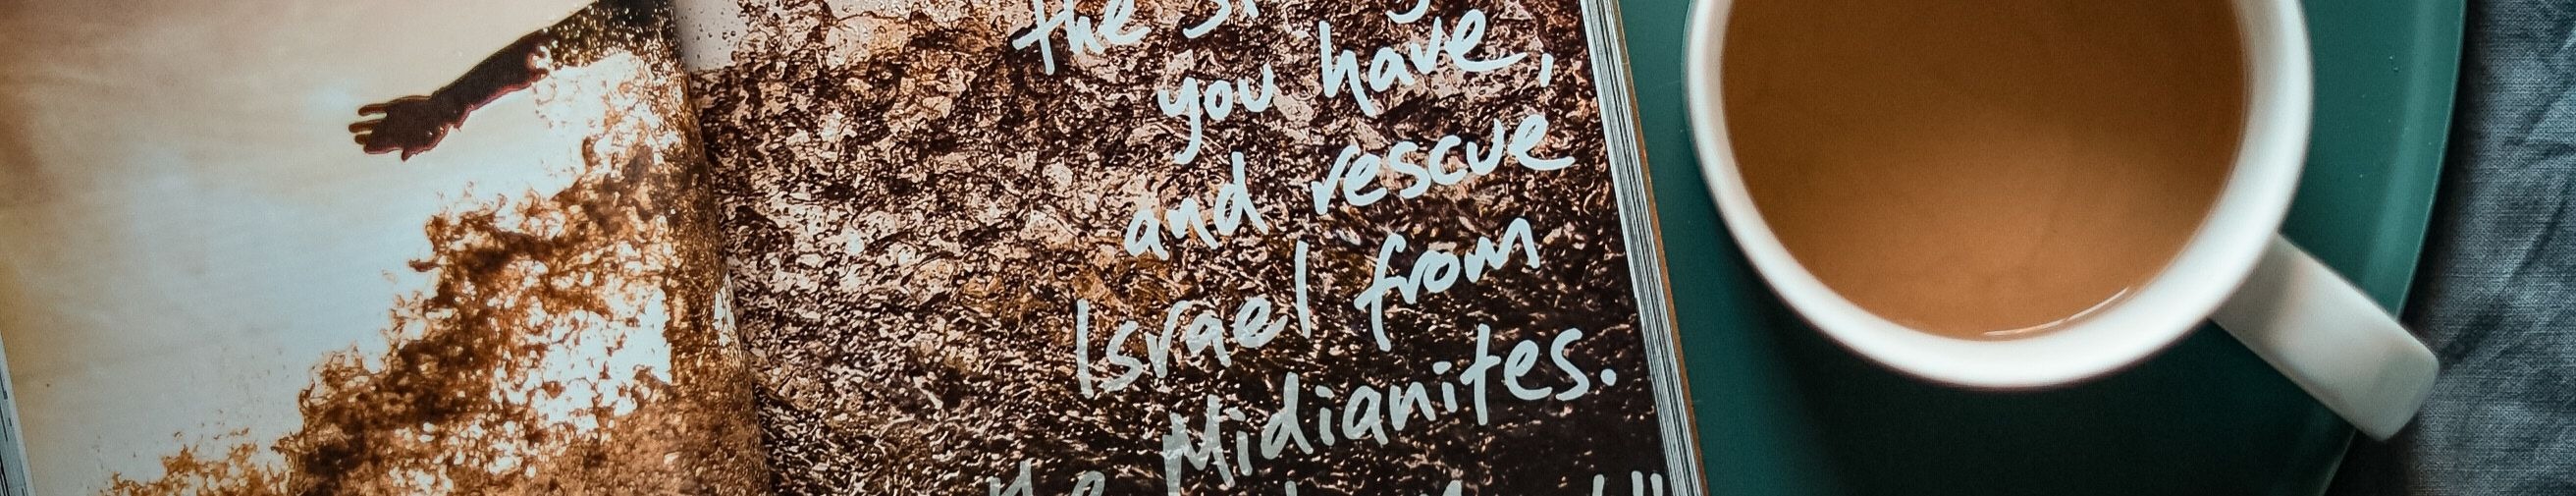 the
you have,
and rescue
Israel from
the Midianites.